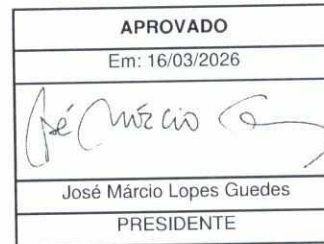 APROVADO
Em: 16/03/2026
José Márcio
José Márcio Lopes Guedes
PRESIDENTE